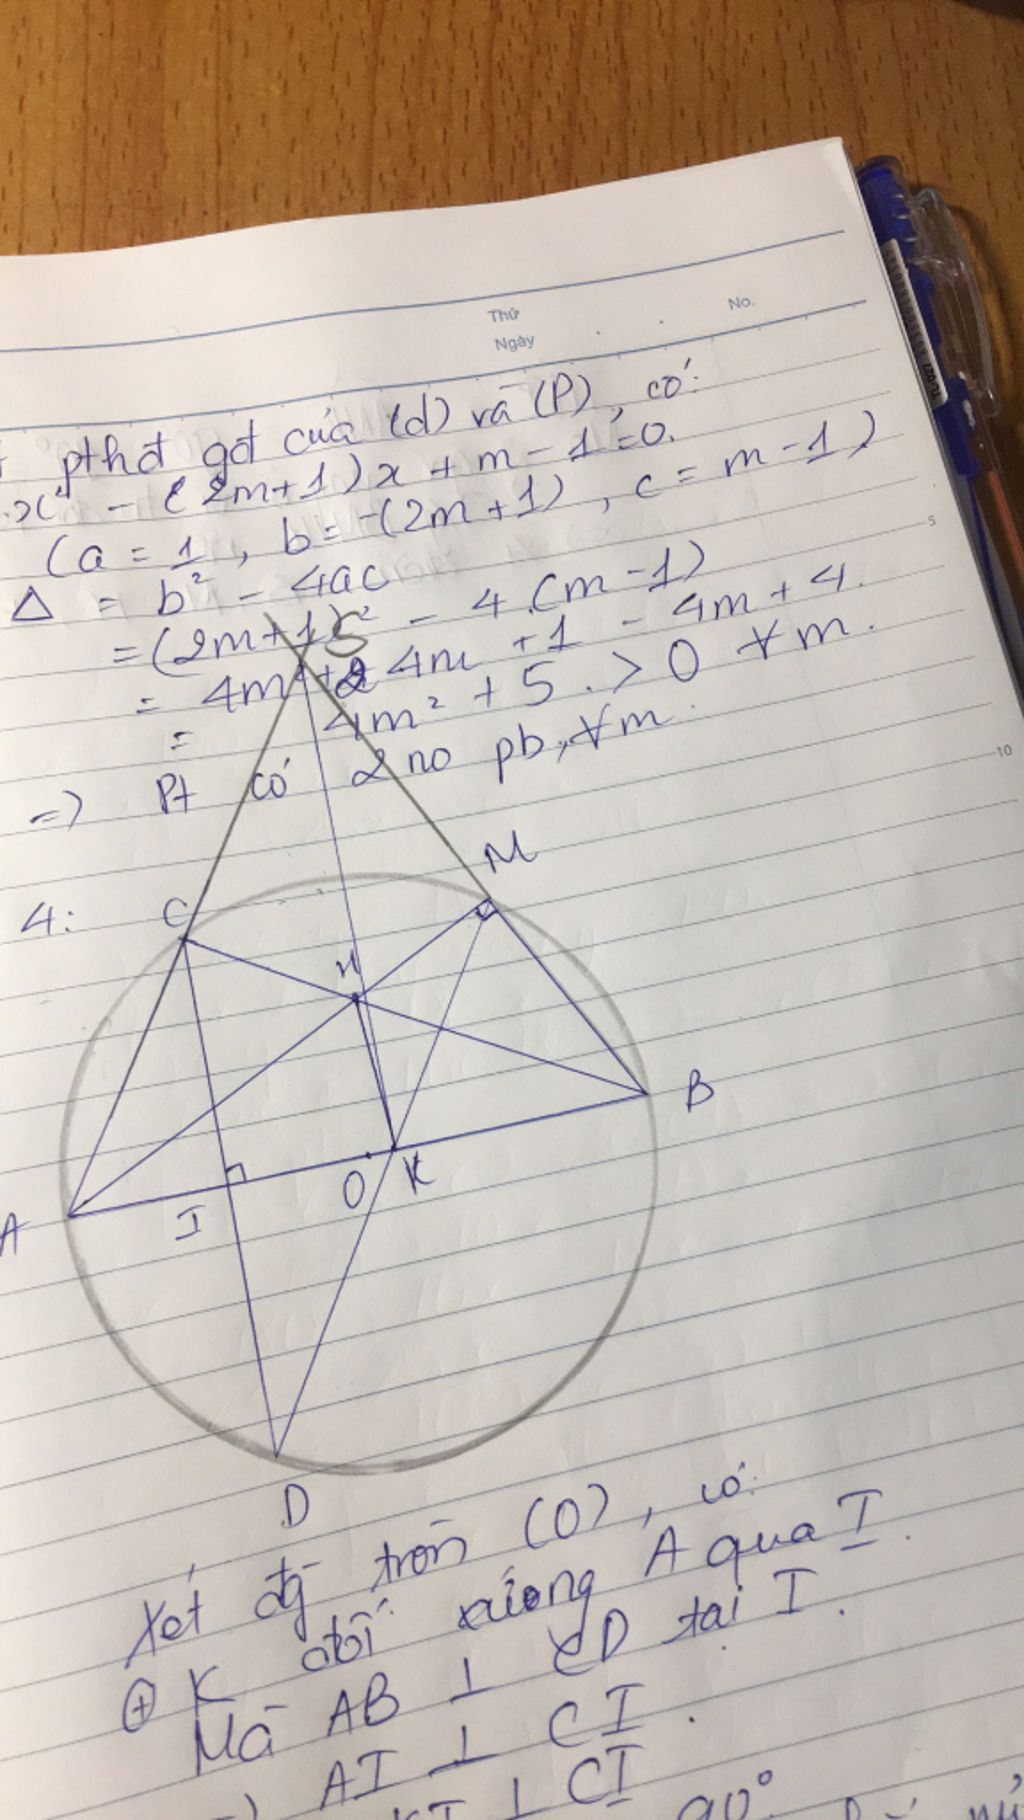 Thứ
No.
Ngày
pthđ gđ của (d) và (P), có:
x² - (2m+1)x + m - 1 = 0.
(a = 1, b = -(2m+1), c = m-1)
Δ = b² - 4ac
= (2m+1)² - 4.(m-1)
5
= 4m² + 4m + 1 - 4m + 4.
= 4m² + 5 > 0 ∀m.
=> Pt có 2 no pb, ∀m.
10
M
4:
C
H
B
O K
I
A
D
Xét đg tròn (O), có:
⊕ K đối xứng A qua I.
Mà AB ⊥ CD tại I.
AI ⊥ CI.
⊥ CI
90°